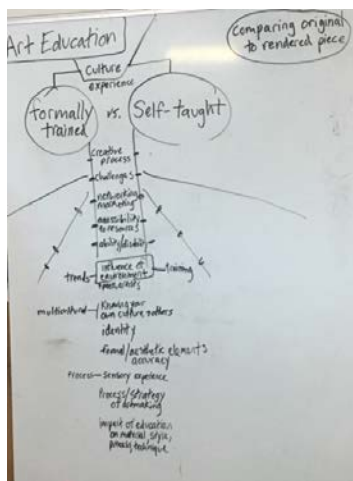 Art Education
Comparing original
to rendered piece
Culture
experience
formally
trained
vs.
Self-taught
creative
process
challenges
networking
marketing
accessibility
to resources
ability/disability
influence of
environment
trends
training
multicultural
Knowing your
own culture + others
identity
formal/aesthetic elements
accuracy
Process - Sensory experience
Process/strategy
of artmaking
Impact of education
on material, style,
process, technique